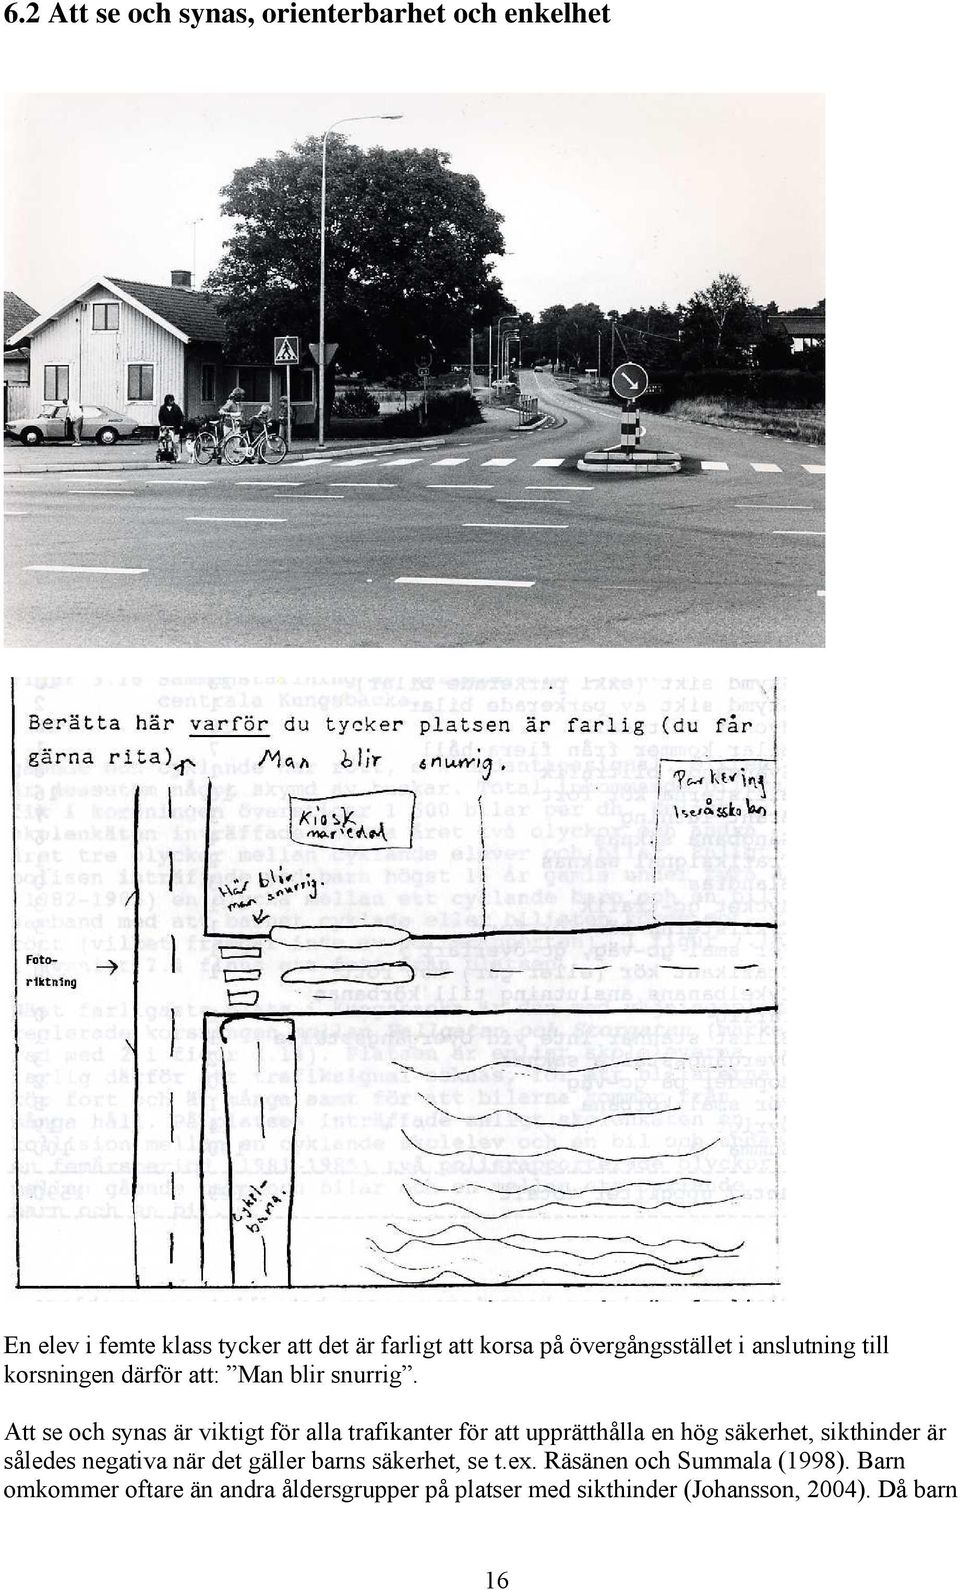 6.2 Att se och synas, orienterbarhet och enkelhet
Berätta här varför du tycker platsen är farlig (du får
gärna rita) Man blir snurrig.
Parkering
Iseråsskolan
Kiosk
mariedal
Här blir
man snurrig.
Foto-
riktning
Cykel-
bana.
En elev i femte klass tycker att det är farligt att korsa på övergångsstället i anslutning till
korsningen därför att: ”Man blir snurrig”.
Att se och synas är viktigt för alla trafikanter för att upprätthålla en hög säkerhet, sikthinder är
således negativa när det gäller barns säkerhet, se t.ex. Räsänen och Summala (1998). Barn
omkommer oftare än andra åldersgrupper på platser med sikthinder (Johansson, 2004). Då barn
16